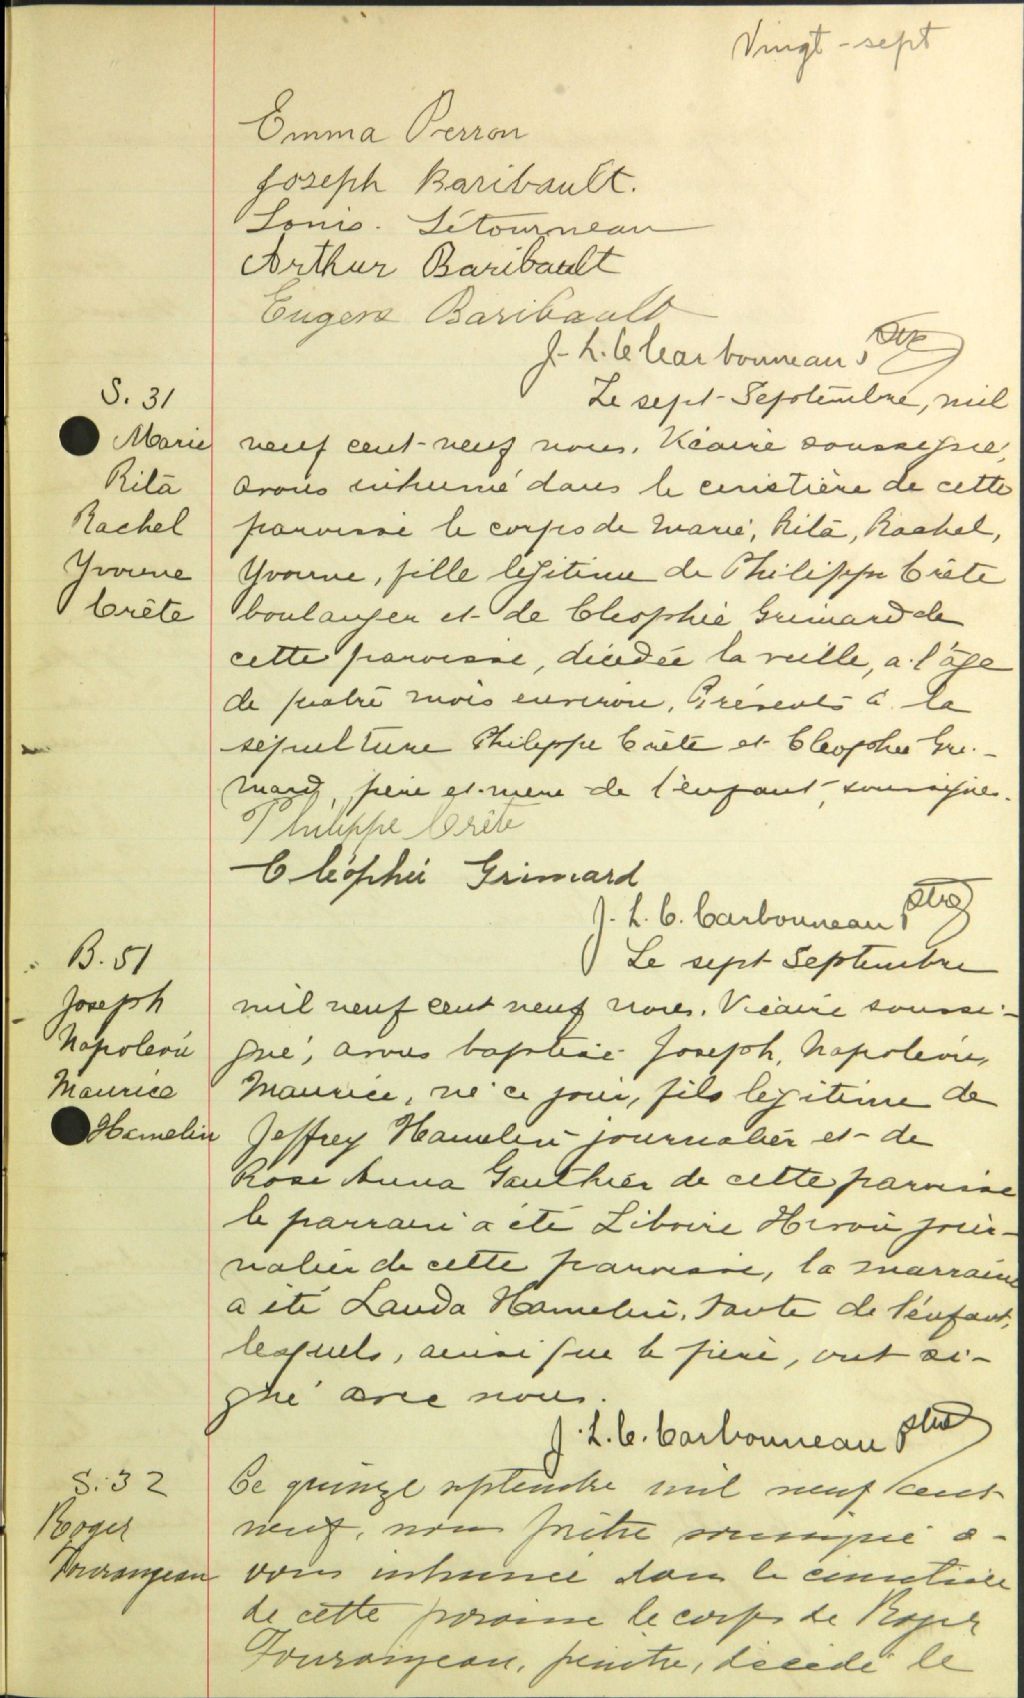 Vingt-sept
Emma Perron
Joseph Baribault.
Louis. Létourneau
Arthur Baribault
Eugene Baribault
J. L. C Carbonneau, ptre
S. 31
Marie
Rita
Rachel
Yvonne
Crête
Le sept Septembre, mil
neuf cent-neuf nous, Vicaire soussigné,
avons inhumé dans le cimetière de cette
paroisse le corps de Marie, Rita, Rachel,
Yvonne, fille légitime de Philippe Crête
boulanger et de Cleophie Grimard de
cette paroisse, décédée la veille, a l'âge
de quatre mois environ. Présents à la
sépulture Philippe Crête et Cleophie Gri-
mard, père et mere de l'enfant, soussignés.
Philippe Crête
Cléophie Grimard
J. L. C. Carbonneau ptre
B. 51
Joseph
Napoleon
Maurice
Hamelin
Le sept Septembre
mil neuf cent neuf nous, Vicaire soussi-
gné, avons baptisé Joseph, Napoleon,
Maurice, né ce jour, fils legitime de
Jeffrey Hamelin journalier et de
Rose Anna Gauthier de cette paroisse
le parrain a été Liboire Hivon jour-
nalier de cette paroisse, la marraine
a été Lauda Hamelin, tante de l'enfant,
lesquels, ainsi que le père, ont si-
gné avec nous.
J. L. C. Carbonneau ptre
S. 32
Roger
Tourangeau
Ce quinze septembre mil neuf cent
neuf, nous prêtre soussigné a-
vons inhumé dans le cimetière
de cette paroisse le corps de Roger
Tourangeau, peintre, décédé le